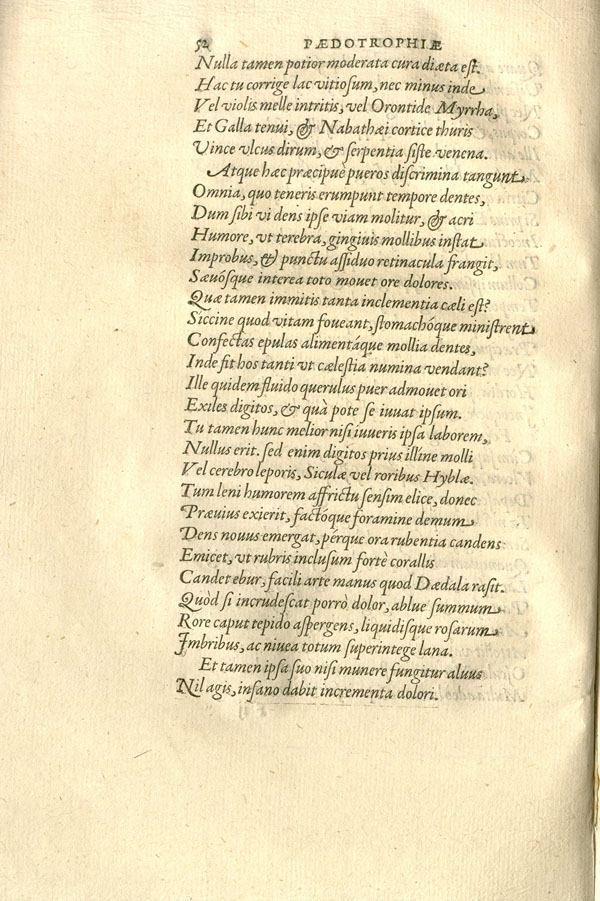 52 PÆDOTROPHIÆ
Nulla tamen potior moderata cura diæta est.
Hac tu corrige lac vitiosum, nec minus inde
Vel violis melle intritis, vel Orontide Myrrha,
Et Galla tenui, & Nabathæi cortice thuris
Vince vlcus dirum, & serpentia siste venena.
Atque hæc præcipuè pueros discrimina tangunt
Omnia, quo teneris erumpunt tempore dentes,
Dum sibi vi dens ipse viam molitur, & acri
Humore, vt terebra, gingiuis mollibus instat
Improbus, & punctu assiduo retinacula frangit,
Sæuósque interea toto mouet ore dolores.
Quæ tamen immitis tanta inclementia cæli est?
Siccine quod vitam foueant, stomachóque ministrent
Confectas epulas alimentáque mollia dentes,
Inde fit hos tanti vt cælestia numina vendant?
Ille quidem fluido querulus puer admouet ori
Exiles digitos, & quà pote se iuuat ipsum.
Tu tamen hunc melior nisi iuueris ipsa laborem,
Nullus erit. sed enim digitos prius illine molli
Vel cerebro leporis, Siculæ vel roribus Hyblæ.
Tum leni humorem affrictu sensim elice, donec
Præuius exierit, factóque foramine demum
Dens nouus emergat, pérque ora rubentia candens
Emicet, vt rubris inclusum fortè corallis
Candet ebur, facili arte manus quod Dædala rasit.
Quòd si incrudescat porrò dolor, ablue summum
Rore caput tepido aspergens, liquidisque rosarum
Imbribus, ac niuea totum superintege lana.
Et tamen ipsa suo nisi munere fungitur aluus
Nil agis, insano dabit incrementa dolori.